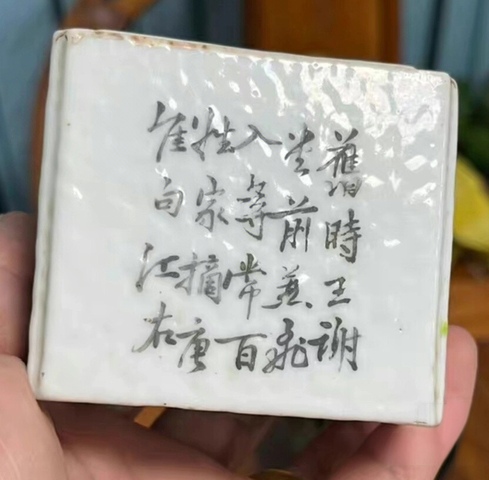 舊時王謝
堂前燕飛
入尋常百
姓家摘唐
佳句江右